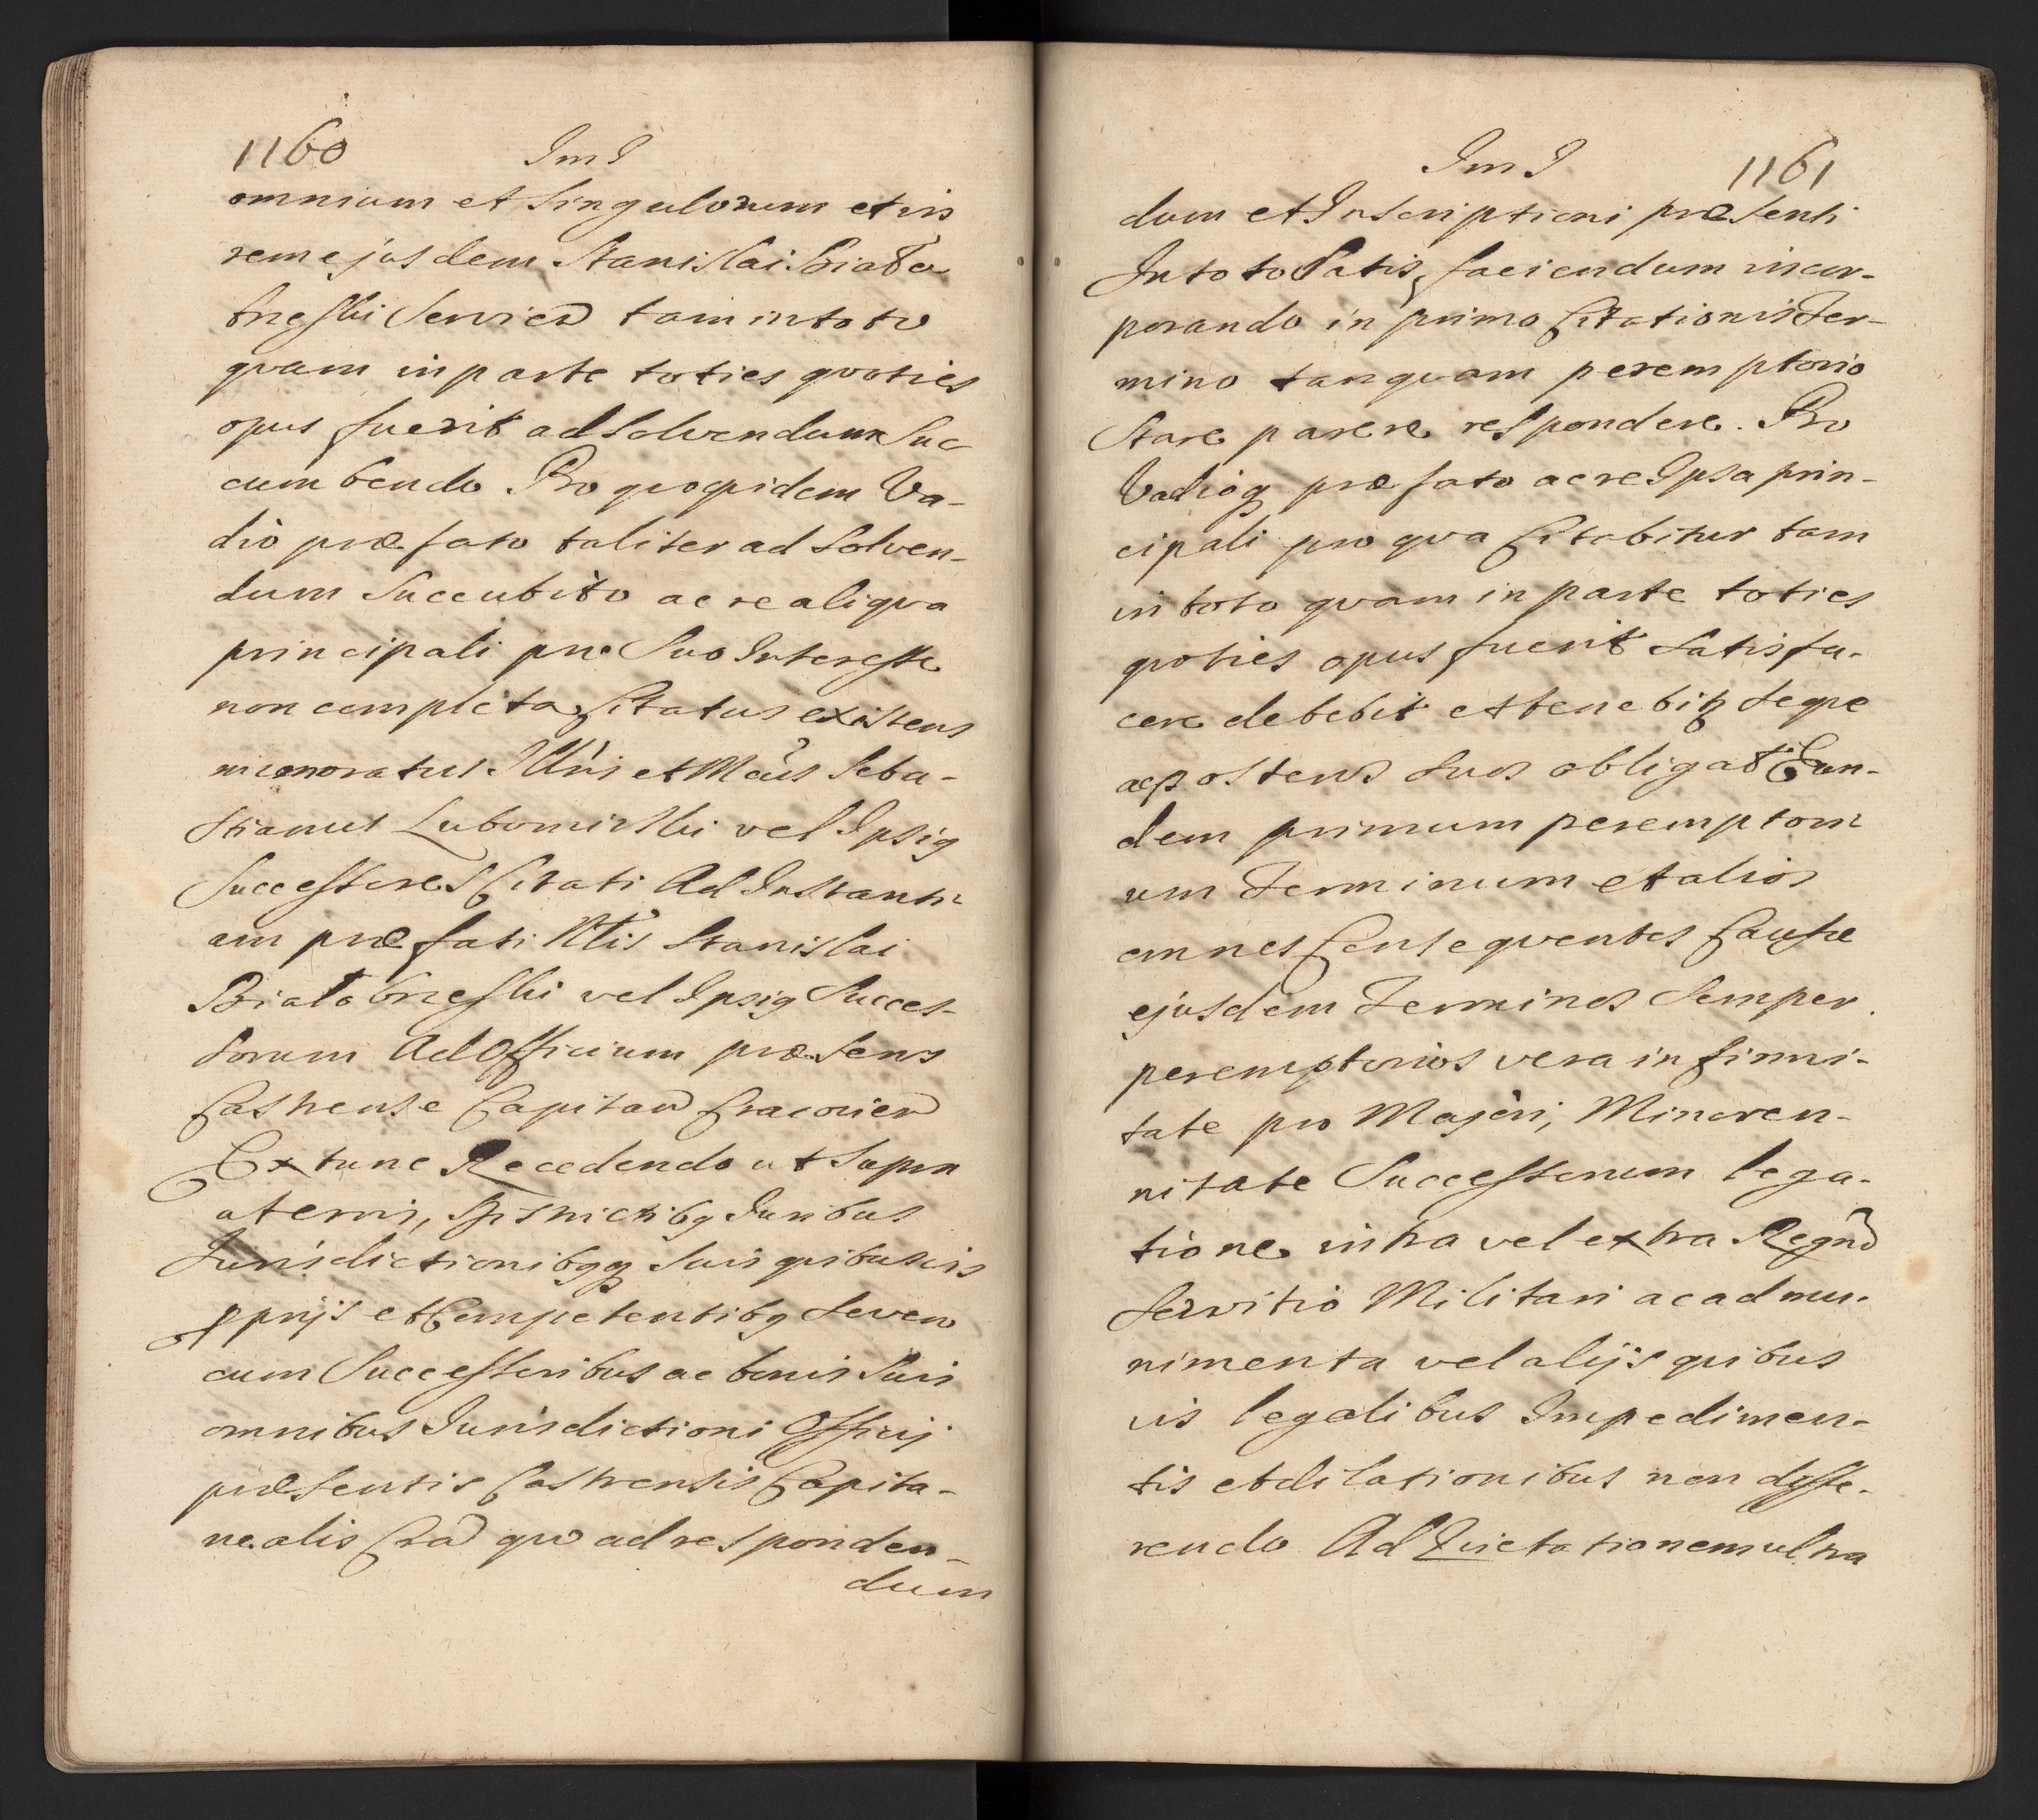 1160 Im I
omnium et Singulorum et in
rem ejusdem Stanislai Biało
brzeski Servien tam in toto
quam in parte toties quoties
opus fuerit ad Solvendum Suc
cumbendo Pro quoquidem Va-
dio præfato taliter ad Solven-
dum Succubito ac re aliqua
principali præ Suo Interesse
non completa Citatus existens
memoratus Illris et Mcus Seba-
stianus Lubomirski vel Ipsiq
Successores Citati Ad Instanti
am præfati Nlis Stanislai
Białobrzeski vel Ipsiq Succes-
sorum Ad Officium præsens
Castrense Capitan Cracovien
Ex tunc Recedendo ut Supra
a terris, districtibq Juribus
Jurisdictionibqq Suis quibusvis
pprijs et Competentibq Seven
cum Successoribus ac bonis Suis
omnibus Jurisdictioni Officij
præsentis Castrensis Capita-
nealis Cra quo ad responden-
dum
Im I 1161
dum et Inscriptioni præsenti
In toto Satis faciendum incor-
porando in primo Citationis Ter-
mino tanquam peremptorio
Stare parere respondere. Pro
Vadioq præfato ac re Ipsa prin-
cipali pro qva Citabitur tam
in toto qvam in parte toties
qvoties opus fuerit Satisfa-
cere debebit et tenebitz Seqve
ac posteros Suos obligat Eun-
dem primum peremptori
um Terminum et alios
omnes Consequentes Causæ
ejusdem Terminos Semper
peremptorios vera infirmi-
tate pro Majori, Minoren-
nitate Successorum lega-
tione intra vel extra Regnu
Servitio Militari ac ad mu-
nimenta vel alijs quibus
vis legalibus Impedimen-
tis et dilationibus non diffe-
rendo Ad Quietationem ultra